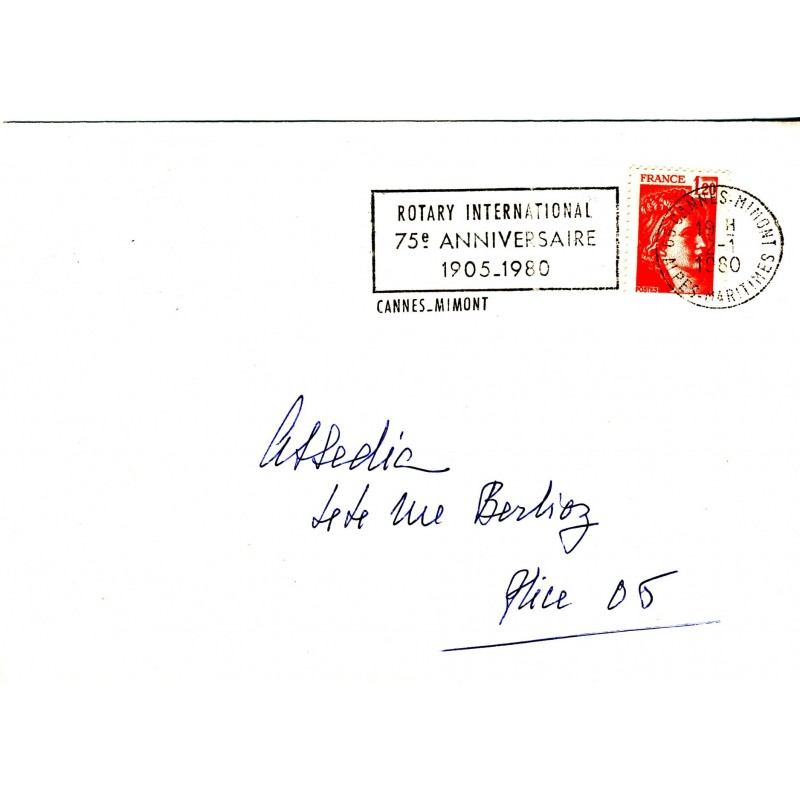 ROTARY INTERNATIONAL
75e ANNIVERSAIRE
1905-1980
CANNES-MIMONT
FRANCE 1,20
POSTES
06 CANNES-MIMONT
19 H
-1
1980
ALPES-MARITIMES
Assedia
rue Berlioz
Nice 05